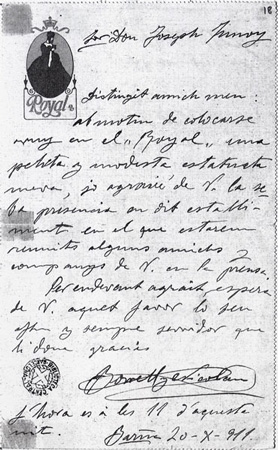 18
Royal
Sr Don Joseph Junoy
Distingit amich meu:
al motiu de colocarse
avuy en el "Royal", una
petita y modesta estatueta
meva, jo agrairé de V. la se-
va presencia en dit establi-
ment en el que estarem
reunits alguns amichs y
companys de V. en la prensa.
Per endevant agrait espera
de V. aquet favor lo seu
afm y sempre servidor que
li dona gracies
l'hora es a les 11 d'aquesta
nit. Barna 20-X-911.